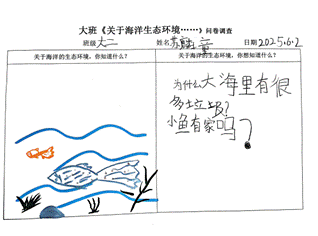 大班《关于海洋生态环境……》问卷调查
班级大二 姓名苏 童 日期2025.6.2
关于海洋的生态环境，你知道什么？ 关于海洋的生态环境，你想知道什么？
为什么大海里有很
多垃圾？
小鱼有家吗？